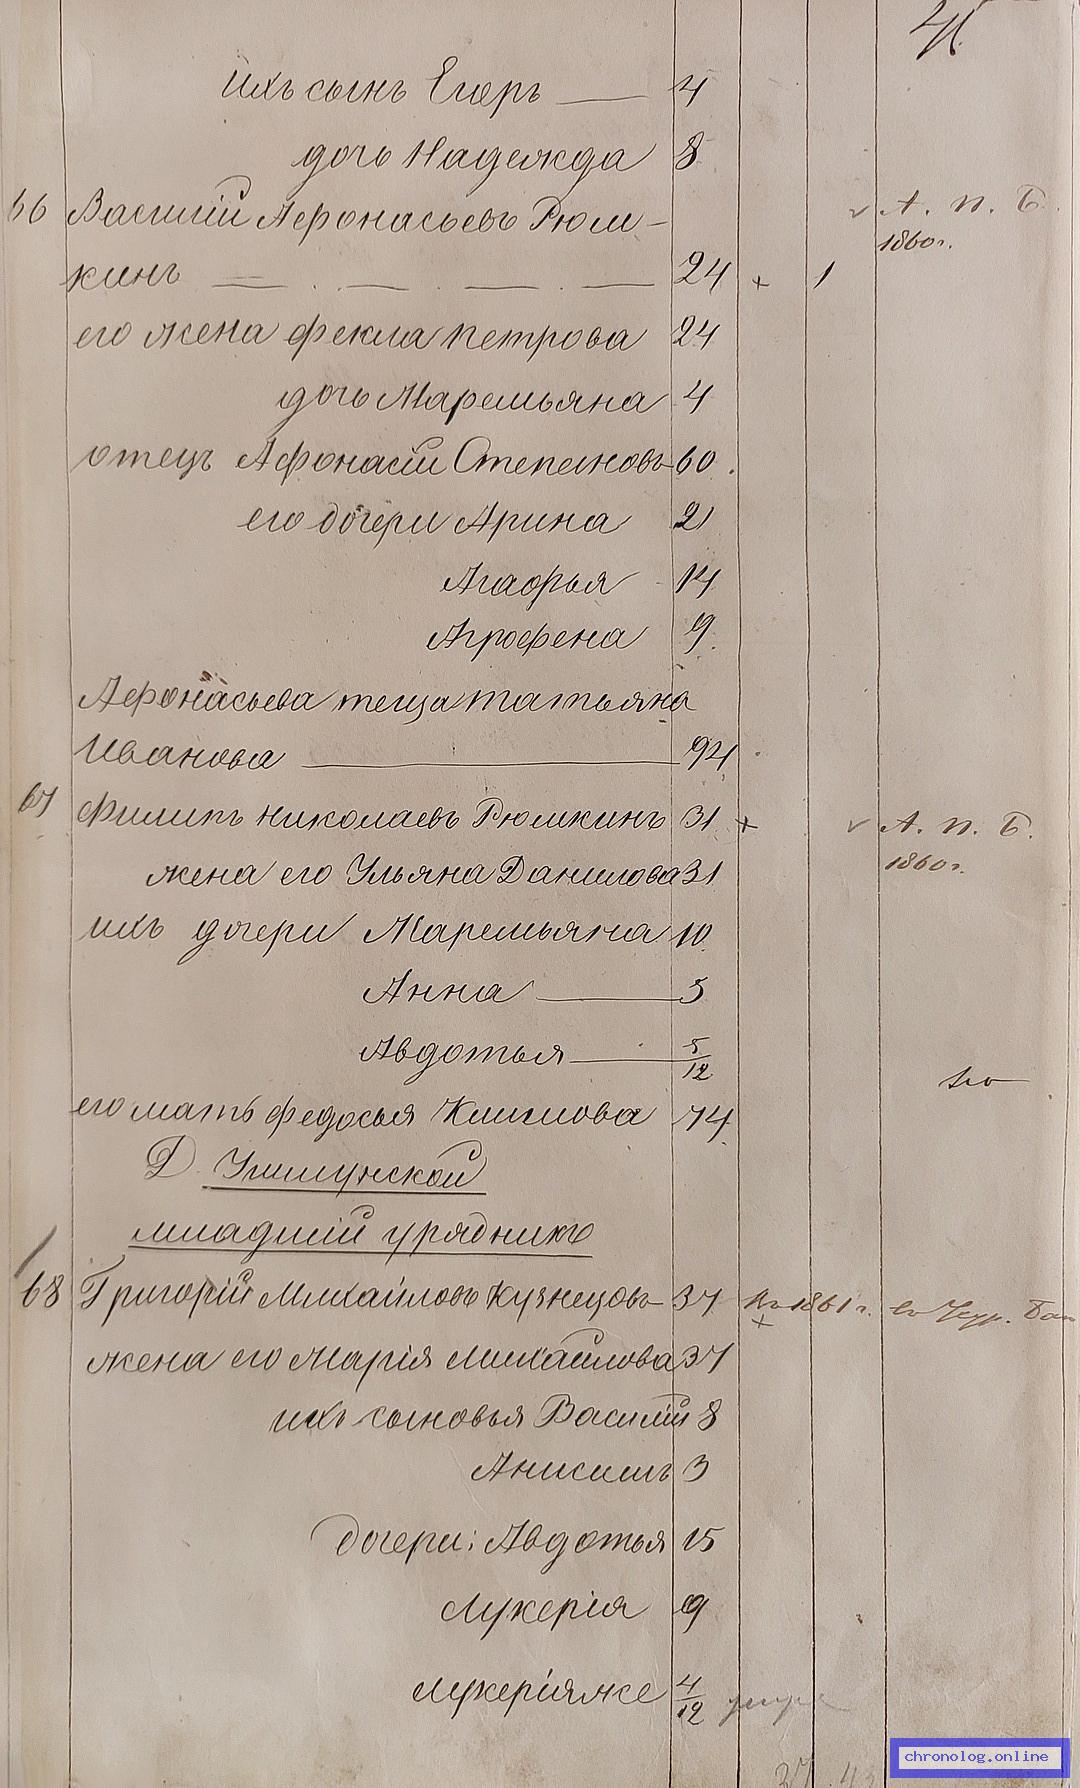 41
ихъ сынъ Егоръ — 4
дочь Надежда 8
66 Василій Афонасьевъ Рюм-
кинъ 24 + 1 А. П. Б.
1860 г.
его жена Фекла Петрова 24
дочь Маремьяна 4
отецъ Афонасій Степановъ 60
его дочери Арина 21
Агафья 14
Агрофена 9
Афонасьева теща Татьяна
Иванова 94
67 Филипъ Николаевъ Рюмкинъ 31 + А. П. Б.
1860 г.
жена его Ульяна Данилова 31
ихъ дочери Маремьяна 10
Анна 5
Авдотья 5/12
его мать Федосья Климова 74
Младшій урядникъ
68 Григорій Михайловъ Кузнецовъ 37 + 1861 г.
жена его Марія Михайлова 37
ихъ сыновья Василій 8
Анисимъ 3
дочери: Авдотья 15
Лукерія 9
Лукерія же 4/12
chronolog.online